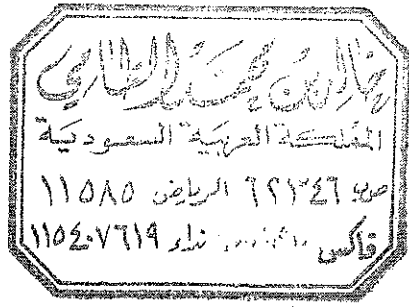 خالد بن محمد
المملكة العربية السعودية
ص ب ٦٢٣٤٦ الرياض ١١٥٨٥
فاكس نداء ١١٥٤٠٧٦١٩